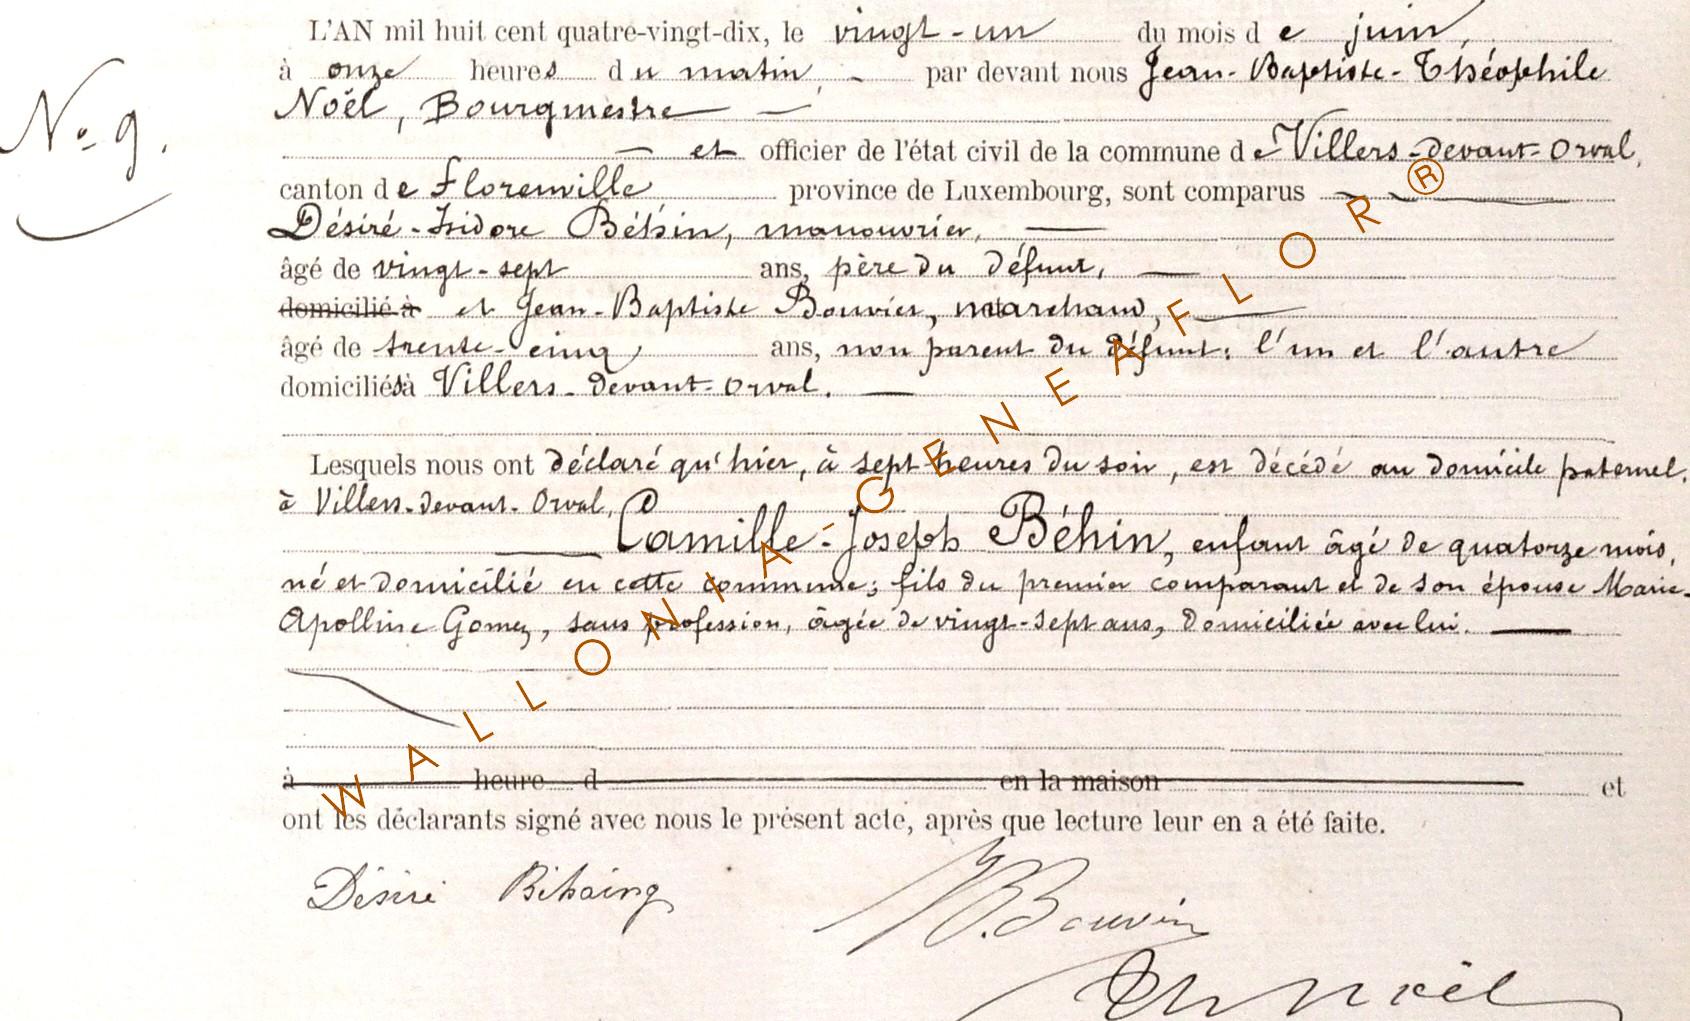 L'AN mil huit cent quatre-vingt-dix, le vingt-un du mois de juin,
à onze heures du matin, par devant nous Jean-Baptiste-Théophile
Noël, Bourgmestre
No 9.
et officier de l'état civil de la commune de Villers-devant-Orval,
canton de Florenville, province de Luxembourg, sont comparus
Désiré-Isidore Béhin, manouvrier,
âgé de vingt-sept ans, père du défunt,
domicilié à et Jean-Baptiste Bouvier, marchand,
âgé de trente-cinq ans, non parent du défunt: l'un et l'autre
domiciliés à Villers-devant-Orval.
Lesquels nous ont déclaré qu'hier, à sept heures du soir, est décédé au domicile paternel,
à Villers-devant-Orval,
Camille-Joseph Béhin, enfant âgé de quatorze mois,
né et domicilié en cette commune; fils du premier comparant et de son épouse Marie-
Apolline Gomez, sans profession, âgée de vingt-sept ans, domiciliée avec lui.
à heure d en la maison et
ont les déclarants signé avec nous le présent acte, après que lecture leur en a été faite.
Désiré Bihaing
Th Noël
WALLONIA-GENEAFLOR®